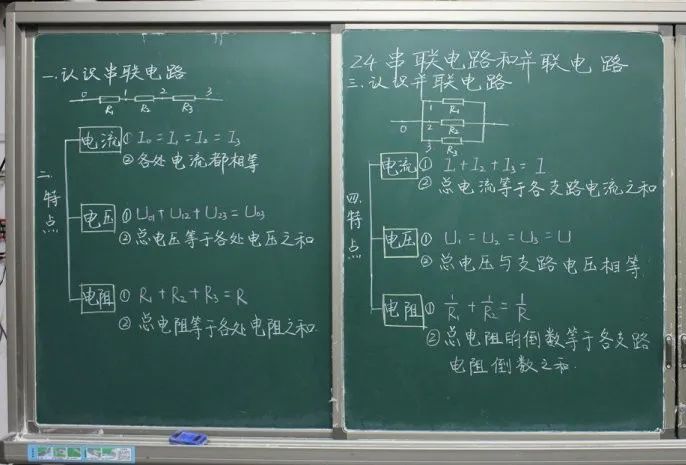 一.认识串联电路
0 1 2 3
R₁ R₂ R₃
二.特点
电流 ① I₀ = I₁ = I₂ = I₃
② 各处电流都相等
电压 ① U₀₁ + U₁₂ + U₂₃ = U₀₃
② 总电压等于各处电压之和
电阻 ① R₁ + R₂ + R₃ = R
② 总电阻等于各处电阻之和
2.4 串联电路和并联电路
三.认识并联电路
1 R₁
0 2 R₂
3 R₃
四.特点
电流 ① I₁ + I₂ + I₃ = I
② 总电流等于各支路电流之和
电压 ① U₁ = U₂ = U₃ = U
② 总电压与支路电压相等.
电阻 ① 1/R₁ + 1/R₂ = 1/R
② 总电阻的倒数等于各支路
电阻倒数之和.